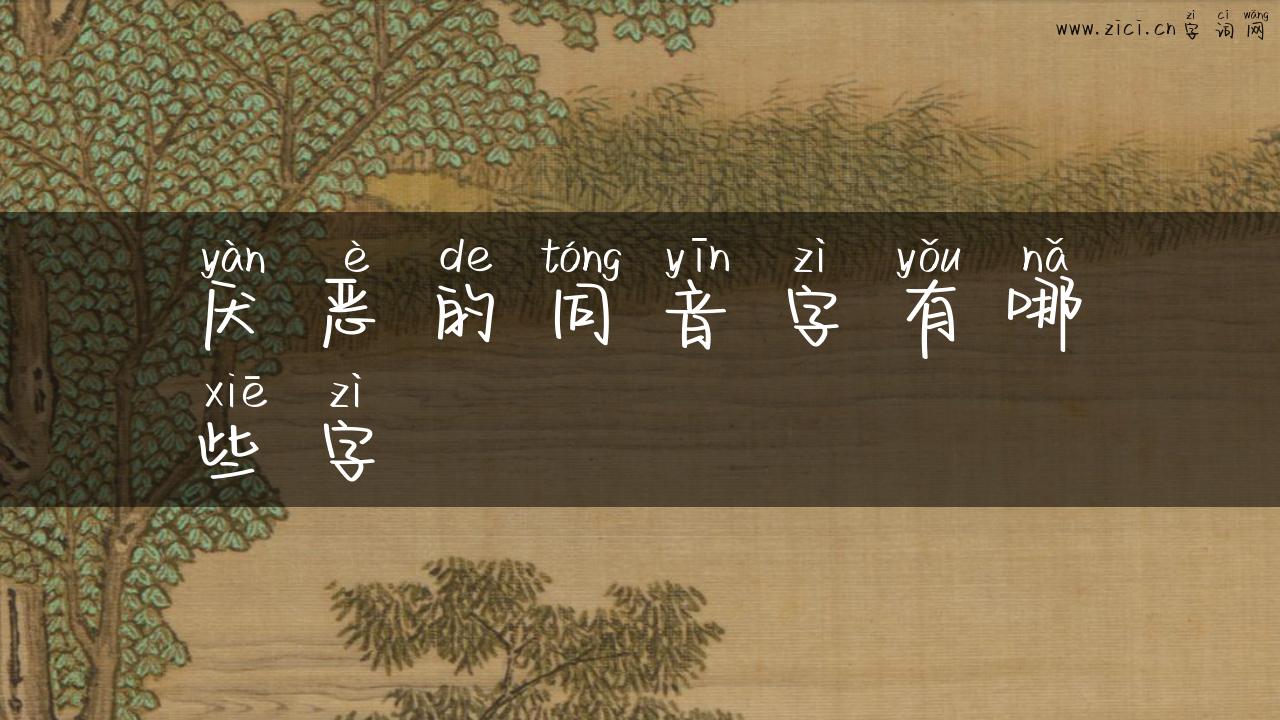 zì cí wǎng
www.zici.cn字词网
yàn è de tóng yīn zì yǒu nǎ
厌恶的同音字有哪
xiē zì
些字